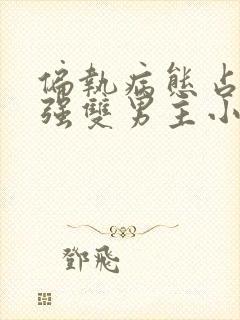 偏執病態占
强雙男主小
鄧飛